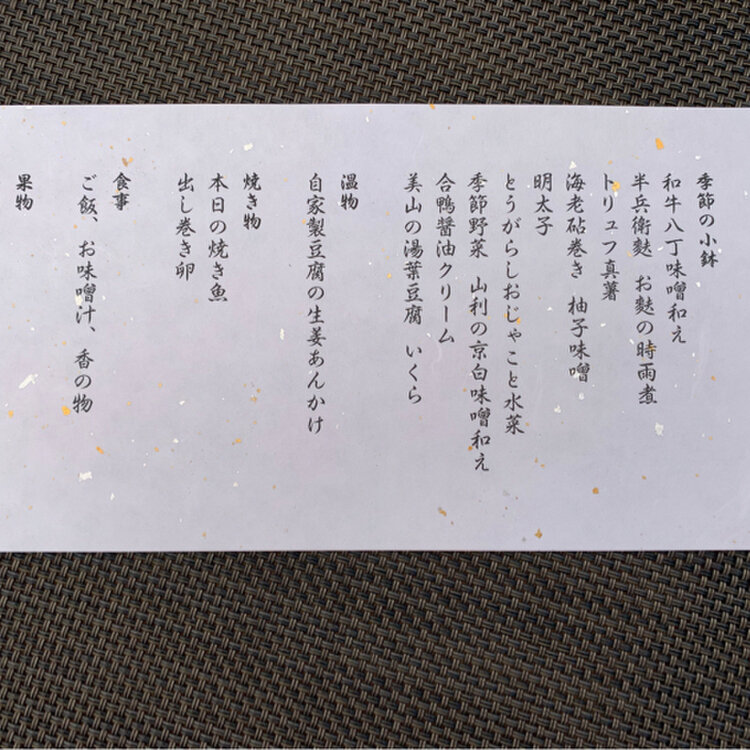 季節の小鉢
和牛八丁味噌和え
半兵衛麩　お麩の時雨煮
トリュフ真薯
海老砧巻き　柚子味噌
明太子
とうがらしおじゃこと水菜
季節野菜　山利の京白味噌和え
合鴨醤油クリーム
美山の湯葉豆腐　いくら
温物
自家製豆腐の生姜あんかけ
焼き物
本日の焼き魚
出し巻き卵
食事
ご飯、お味噌汁、香の物
果物